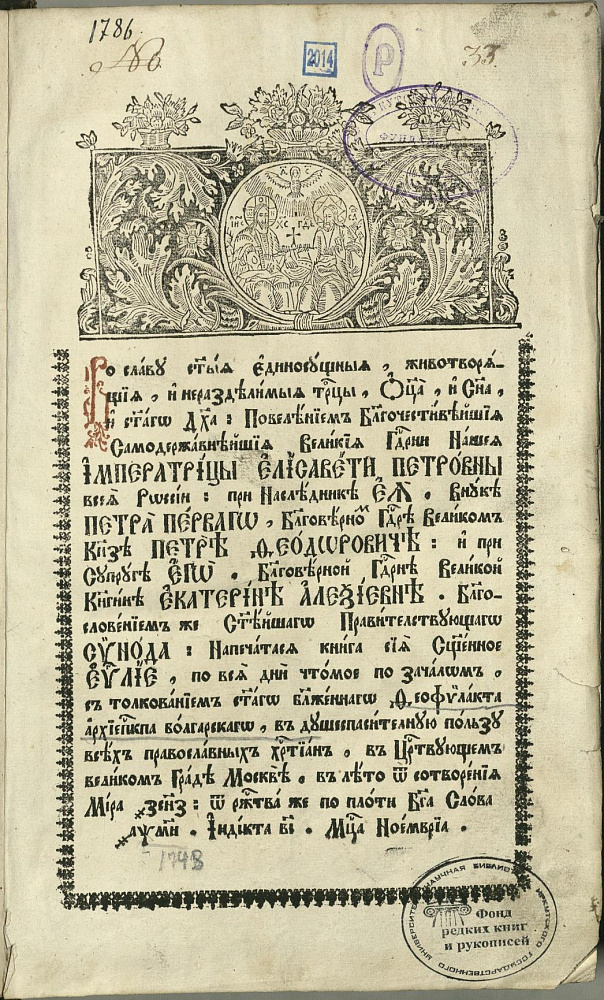 1786.
№
2014
Р
33
Во сла́ву ст҃ы́ѧ є҆диносꙋ́щныѧ, животворѧ́-
щїѧ, и҆ нераздѣли́мыѧ трⷪ҇цы, Ѻ҆ц҃а̀, и҆ Сн҃а,
и҆ ст҃а́гѡ Дх҃а: Повелѣ́нїемъ Бл҃гочести́вѣйшїѧ
Самодержа́внѣйшїѧ Вели́кїѧ Гдⷭ҇рни На́шеѧ
І҆МПЕРАТРИ́ЦЫ Є҆ЛІСАВЕ́ТИ ПЕТРО́ВНЫ
всеѧ̀ Рѡссі́и: при Наслѣ́дникѣ Є҆Ѧ̀, Внꙋ́кѣ
ПЕТРА̀ ПЕ́РВАГѠ, Бл҃говѣ́рномъ Гдⷭ҇рѣ Вели́комъ
Кнѧ́зѣ ПЕТРѢ̀ Ѳ҆ЕО́ДѠРОВИЧѢ: и҆ при
Сꙋпрꙋ́гѣ Є҆ГѠ̀, Бл҃говѣ́рной Гдⷭ҇рнѣ Вели́кой
Кнѧги́нѣ Є҆КАТЕРИ́НѢ А҆ЛЕѮІ́ЕВНѢ. Бл҃го-
слове́нїемъ же Ст҃ѣ́йшагѡ Прави́телствꙋющагѡ
СѴНО́ДА: Напеча́тасѧ кни́га сїѧ̀ Сщ҃е́нное
Є҆Ѵ҃ЛІЕ, по всѧ̀ дни̑ что́мое по зача́лѡмъ,
съ толкова́нїемъ ст҃а́гѡ бл҃же́ннагѡ Ѳ҆еофѵла́кта
а҆рхїепⷭ҇кпа волга́рскагѡ, въ дꙋшеспаси́телнꙋю по́льзꙋ
всѣ́хъ правосла́вныхъ хрⷭ҇тїа́нъ, въ Црⷭ҇твꙋющемъ
вели́комъ Гра́дѣ Москвѣ̀, въ лѣ́то ѿ сотворе́нїѧ
Мі́ра ҂зсн҃з: ѿ ржⷭ҇тва́ же по пло́ти Бг҃а Сло́ва
҂аѱм҃и. І҆нді́кта в҃і. Мцⷭ҇а Ное́мврїа.
1748
НАУЧНАЯ БИБЛИОТЕКА ИРКУТСКОГО ГОСУДАРСТВЕННОГО УНИВЕРСИТЕТА
Фонд
редких книг
и рукописей